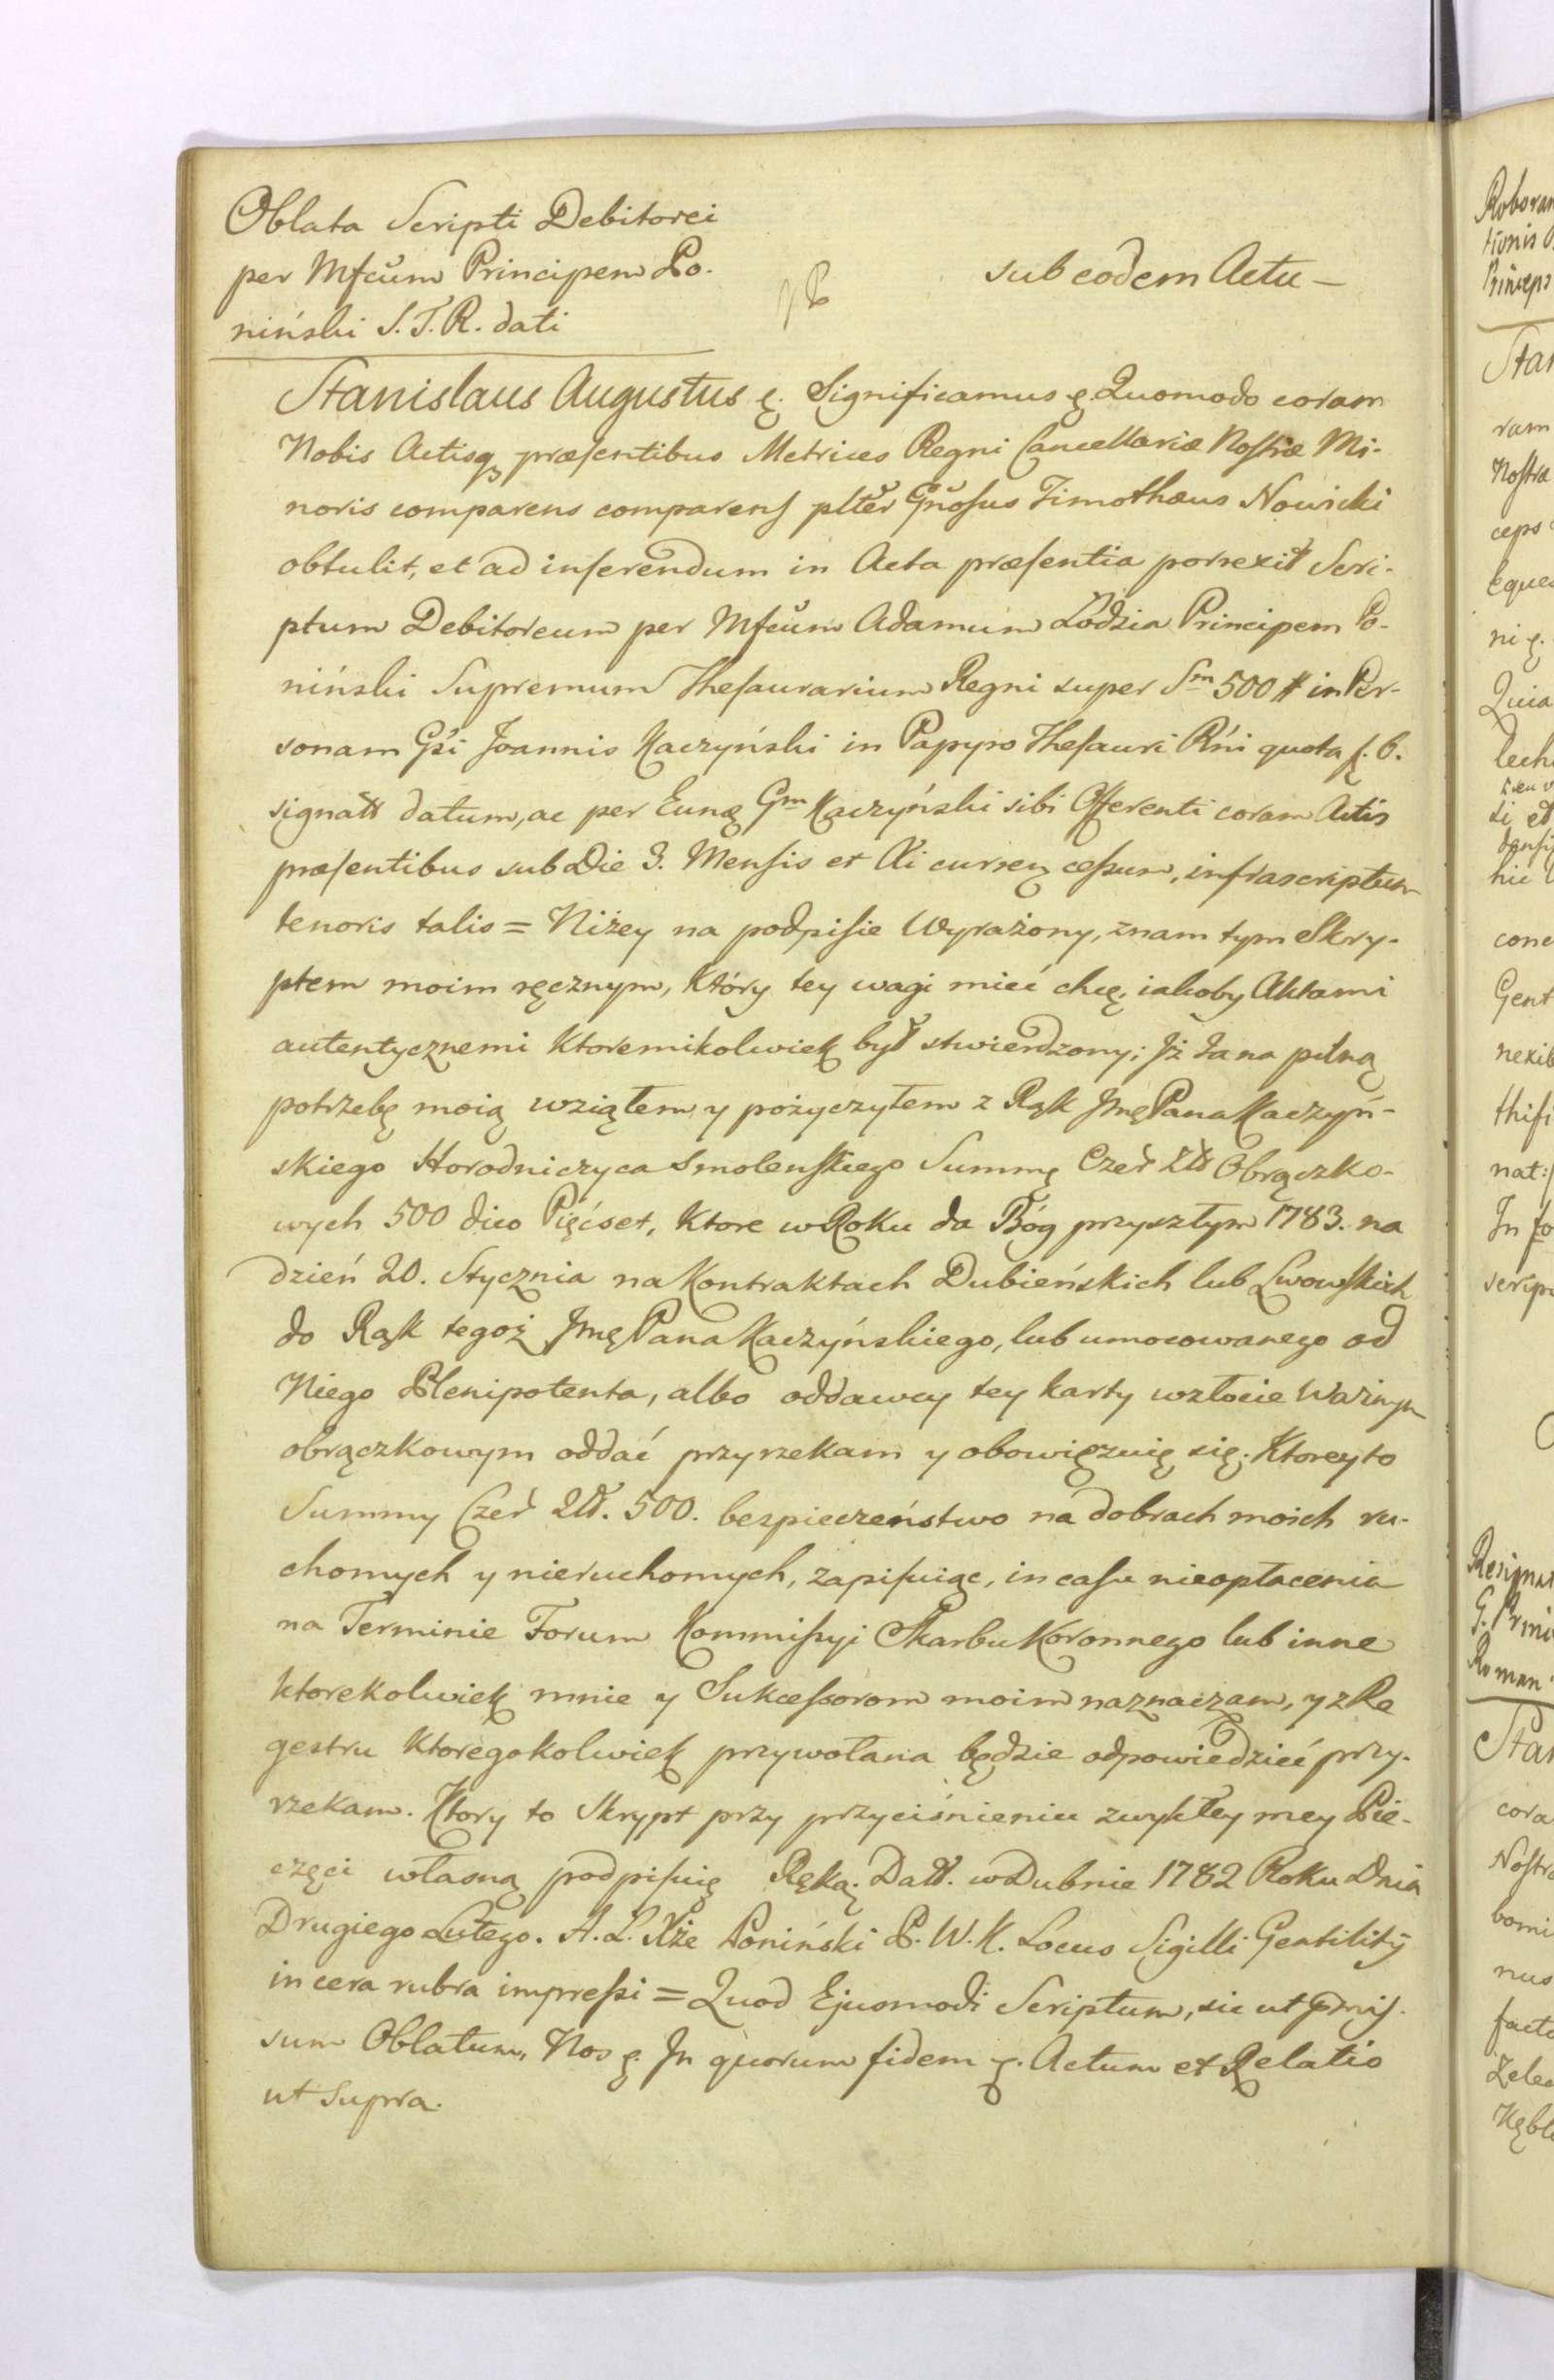 Oblata Scripti Debitorei
per Mfcum Principem Po-
niński S.T.R. dati
sub eodem Actu —
Stanislaus Augustus ę. Significamus ę. Quomodo coram
Nobis Actisq præsentibus Metrices Regni Cancellariæ Nostræ Mi-
noris comparens comparens plter Gnosus Timothæus Nowicki
obtulit, et ad inserendum in Acta præsentia porrexit Scri-
ptum Debitoreum per Mfcum Adamum Łodzia Principem Po-
niński Supremum Thesaurarium Regni super Sm 500 # in Per-
sonam Gsi Joannis Kaczyński in Papyro Thesauri Rni quota f. 6.
signatt datum, ac per Eunq Gm Kaczyński sibi Offerenti coram Actis
præsentibus sub Die 3. Mensis et Ai curren cessum, infrascriptum
tenoris talis = Niżey na podpisie Wyrażony, znam tym Skry-
ptem moim ręcznym, Który tey wagi mieć chcę, iakoby Aktami
autentycznemi Ktoremikolwiek był stwierdzony; Jż Ja na pilną
potrzebę moią wziąłem y pożyczyłem z Rąk Jmę Pana Kaczyń-
skiego Horodniczyca Smolenskiego Summę Czer Złł Obrączko-
wych 500 dico Pięćset, Ktore w Roku da Bóg przyszłym 1783. na
dzień 20. Stycznia na Kontraktach Dubieńskich lub Lwowskich
do Rąk tegoż Jmę Pana Kaczyńskiego, lub umocowanego od
Niego Plenipotenta, albo oddawcy tey karty wzłocie Ważnym
obrączkowym oddać przyrzekam y obowięzuię się. Ktorey to
Summy Czer Złł. 500. bezpieczeństwo na dobrach moich ru-
chomych y nieruchomych, zapisuiąc, in casu nieopłacenia
na Terminie Forum Kommissyi Skarbu Koronnego lub inne
ktorekolwiek mnie y Sukcessorom moim naznaczam, y z Re
gestru Ktoregokolwiek przywołana będzie odpowiedzieć przy-
rzekam. Ktory to Skrypt przy przyciśnieniu zwykłey mey Pie-
częci własną podpisuię Ręką. Datt. w Dubnie 1782 Roku Dnia
Drugiego Lutego. A. Ł. Xże Poniński P. W. K. Locus Sigilli Gentilitÿ
in cera rubra impressi = Quod Ejusmodi Scriptum, sic ut præmis-
sum Oblatum, Nos ę. Jn quorum fidem ę. Actum et Relatio
ut Supra.
Stan
ram
Nostra
ceps
ni ę.
Quia
cone
Gent
nexib
nat:
Jn fo
scrip
Roman
Stan
cora
Nostra
nus